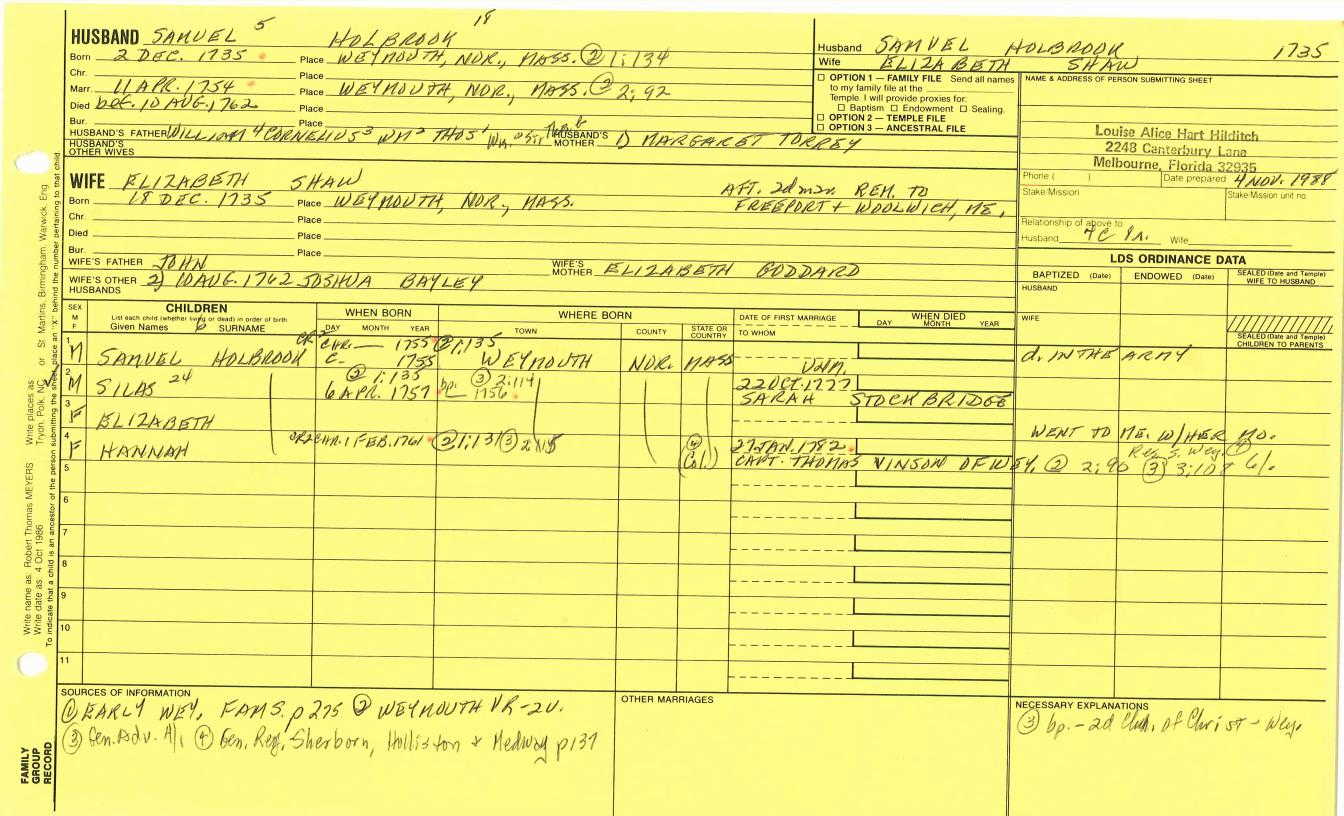 HUSBAND SAMUEL 5 HOLBROOK 18
Born 2 DEC. 1735 Place WEYMOUTH, NOR., MASS. ② 1:134
Chr.
Marr. 11 APR. 1754 Place WEYMOUTH, NOR., MASS. ② 2:92
Died bef. 10 AUG. 1762 Place
Bur. Place
HUSBAND'S FATHER WILLIAM 4 CORNELIUS 3 WM 2 THOS 1 HUSBAND'S MOTHER 1) MARGARET TORREY
HUSBAND'S OTHER WIVES
Husband SAMUEL HOLBROOK 1735
Wife ELIZABETH SHAW
OPTION 1 — FAMILY FILE Send all names
to my family file at the
Temple. I will provide proxies for:
Baptism Endowment Sealing.
OPTION 2 — TEMPLE FILE
OPTION 3 — ANCESTRAL FILE
NAME & ADDRESS OF PERSON SUBMITTING SHEET
Louise Alice Hart Hilditch
2248 Canterbury Lane
Melbourne, Florida 32935
Phone ( ) Date prepared 4 NOV. 1988
Stake Mission Stake Mission unit no.
Relationship of above to
Husband Wife
WIFE ELIZABETH SHAW
Born 18 DEC. 1735 Place WEYMOUTH, NOR., MASS.
AFT. 2d mar. REM. TO
FREEPORT + WOOLWICH, ME.
Chr. Place
Died Place
Bur. Place
WIFE'S FATHER JOHN WIFE'S MOTHER ELIZABETH GODDARD
WIFE'S OTHER HUSBANDS 2) 10 AUG. 1762 JOSHUA BAYLEY
LDS ORDINANCE DATA
BAPTIZED (Date) ENDOWED (Date) SEALED (Date and Temple) WIFE TO HUSBAND
HUSBAND
WIFE
SEALED (Date and Temple) CHILDREN TO PARENTS
SEX M F
CHILDREN
List each child (whether living or dead) in order of birth
Given Names 6 SURNAME
WHEN BORN
DAY MONTH YEAR
WHERE BORN
TOWN COUNTY STATE OR COUNTRY
DATE OF FIRST MARRIAGE
TO WHOM
WHEN DIED
DAY MONTH YEAR
1 M SAMUEL HOLBROOK CHR. 1755 ② 1:135
C. 1755 WEYMOUTH NOR. MASS UNM. d. IN THE ARMY
2 M SILAS 24 ② 1:135 6 APR. 1757 bp. ③ 2:114 1756 22 OCT. 1777
SARAH STOCKBRIDGE
3 F ELIZABETH WENT TO ME. W/HER MO.
4 F HANNAH CHR. 1 FEB. 1761 ② 1:131 ③ 2:115 27 JAN. 1782
CAPT. THOMAS VINSON OF WEY. ② 2:90 ③ 3:108
5
6
7
8
9
10
11
SOURCES OF INFORMATION
① EARLY WEY. FAMS. p 275 ② WEYMOUTH VR - 2v.
③ Gen. Adv. ④ Gen. Reg. Sherborn, Holliston & Medway p 137
OTHER MARRIAGES
NECESSARY EXPLANATIONS
③ bp. - 2d Chh. of Christ - Wey.
FAMILY GROUP RECORD
Write name as: Robert Thomas MEYERS Write places as: Tryon, Polk, NC or St Martins, Birmingham, Warwick, Eng
Write date as: 4 Oct 1986
To indicate that a child is an ancestor of the person submitting the sheet, place an "X" behind the number pertaining to that child.